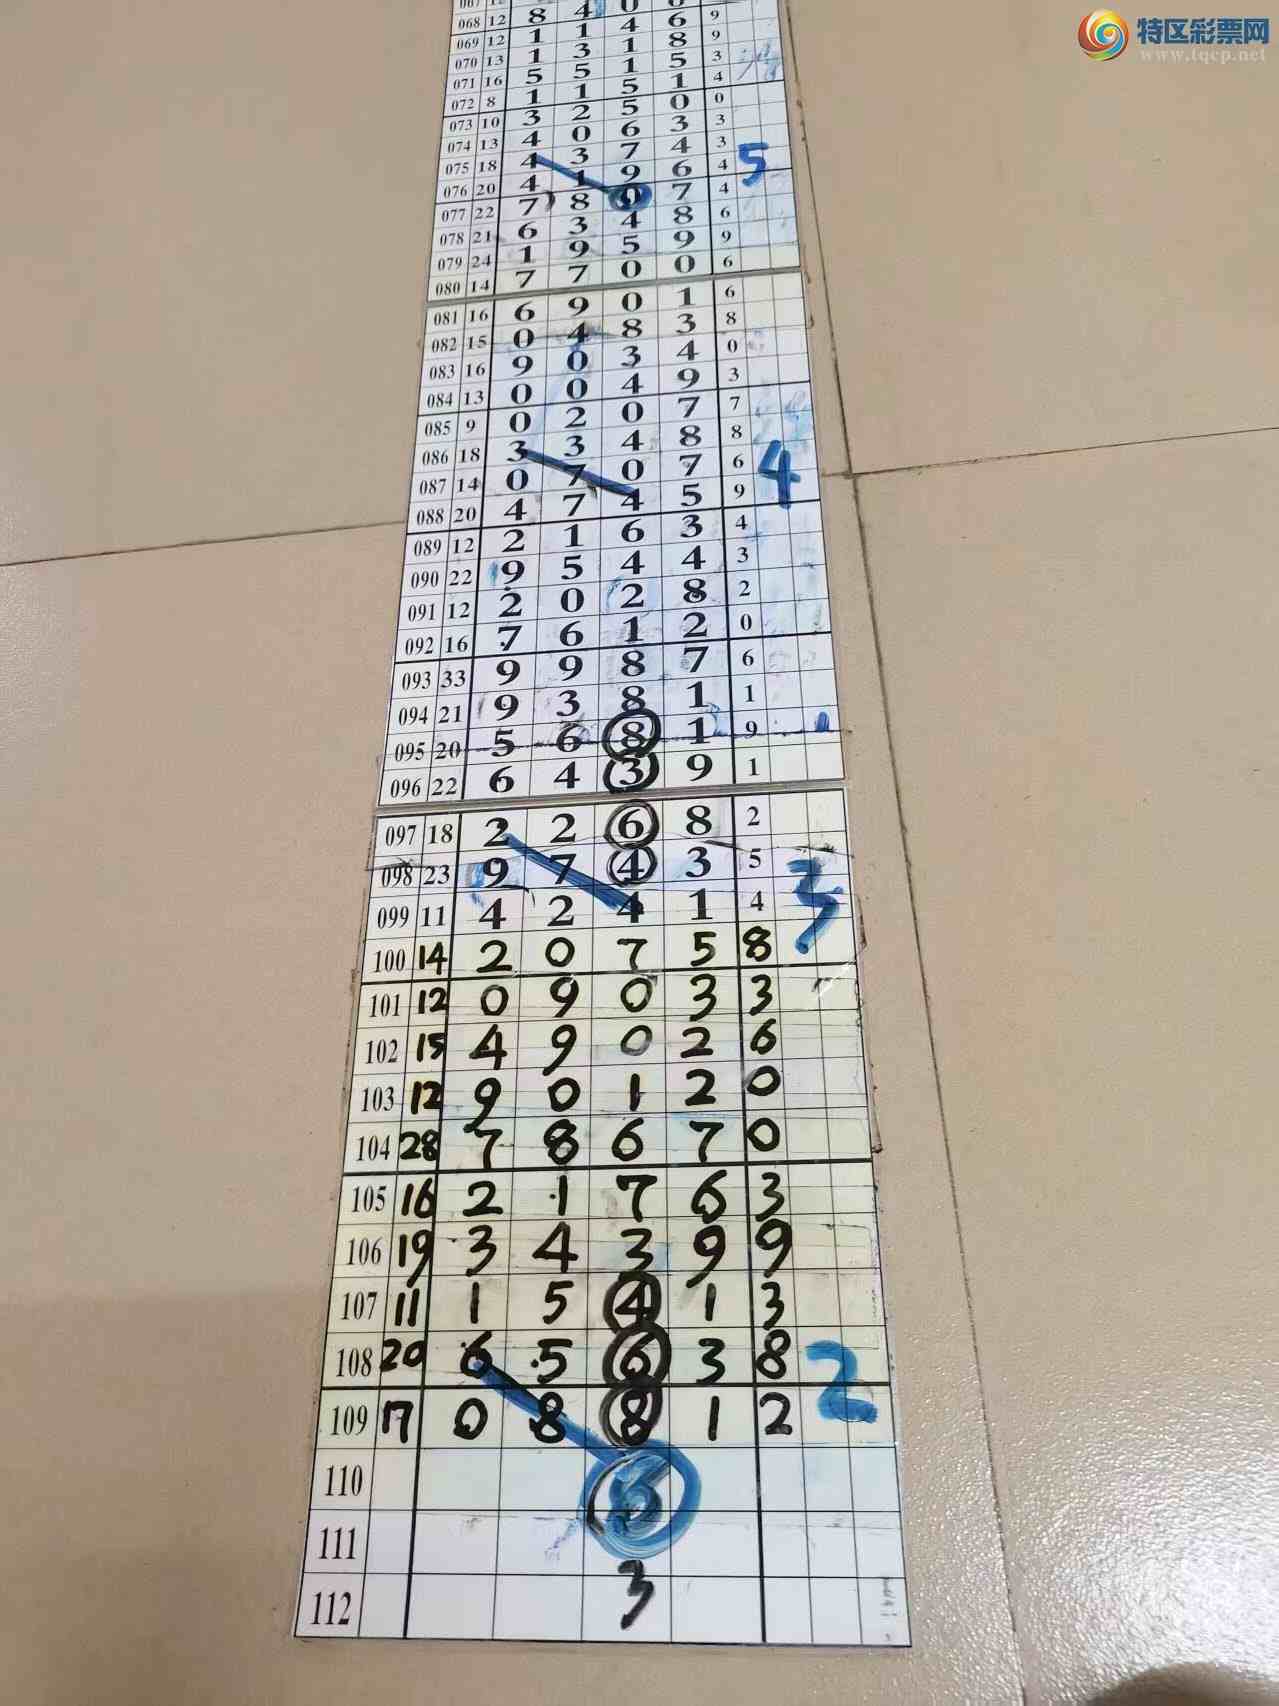 特区彩票网
www.tqcp.net
068 12 8 4 0 6 9
069 12 1 1 4 8 9
070 13 1 3 1 5 3
071 16 5 5 1 1 4
072 8 1 1 5 0 0
073 10 3 2 5 3 3
074 13 4 0 6 4 3
075 18 4 3 7 6 4 5
076 20 4 1 9 7 4
077 22 7 8 0 8 6
078 21 6 3 4 9 9
079 24 1 9 5 0 6
080 14 7 7 0
081 16 6 9 0 1 6
082 15 0 4 8 3 8
083 16 9 0 3 4 0
084 13 0 0 4 9 3
085 9 0 2 0 7 7
086 18 3 3 4 8 8
087 14 0 7 0 7 6 4
088 20 4 7 4 5 9
089 12 2 1 6 3 4
090 22 9 5 4 4 3
091 12 2 0 2 8 2
092 16 7 6 1 2 0
093 33 9 9 8 7 6
094 21 9 3 8 1 1
095 20 5 6 8 1 9
096 22 6 4 3 9 1
097 18 2 2 6 8 2
098 23 9 7 4 3 5 3
099 11 4 2 4 1 4
100 14 2 0 7 5 8
101 12 0 9 0 3 3
102 15 4 9 0 2 6
103 12 9 0 1 2 0
104 28 7 8 6 7 0
105 16 2 1 7 6 3
106 19 3 4 3 9 9
107 11 1 5 4 1 3
108 20 6 5 6 3 8 2
109 17 0 8 8 1 2
110
111
112 3